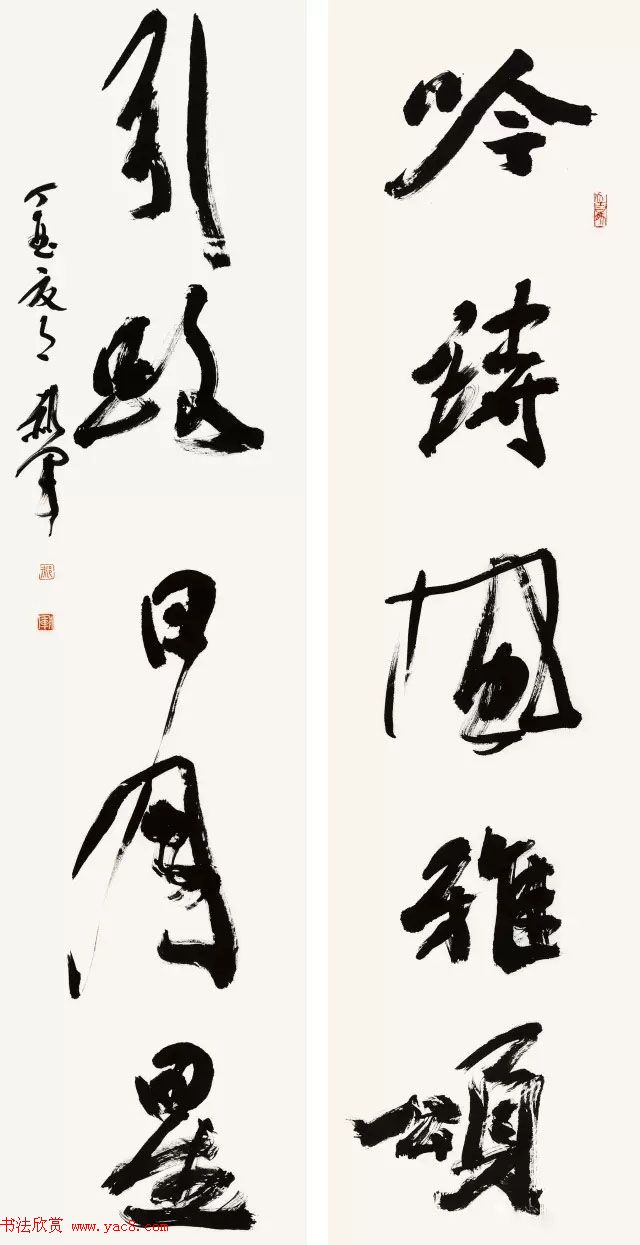 吟詩風雅頌
引路日月星
丁酉夏月
书法欣赏 www.yac8.com